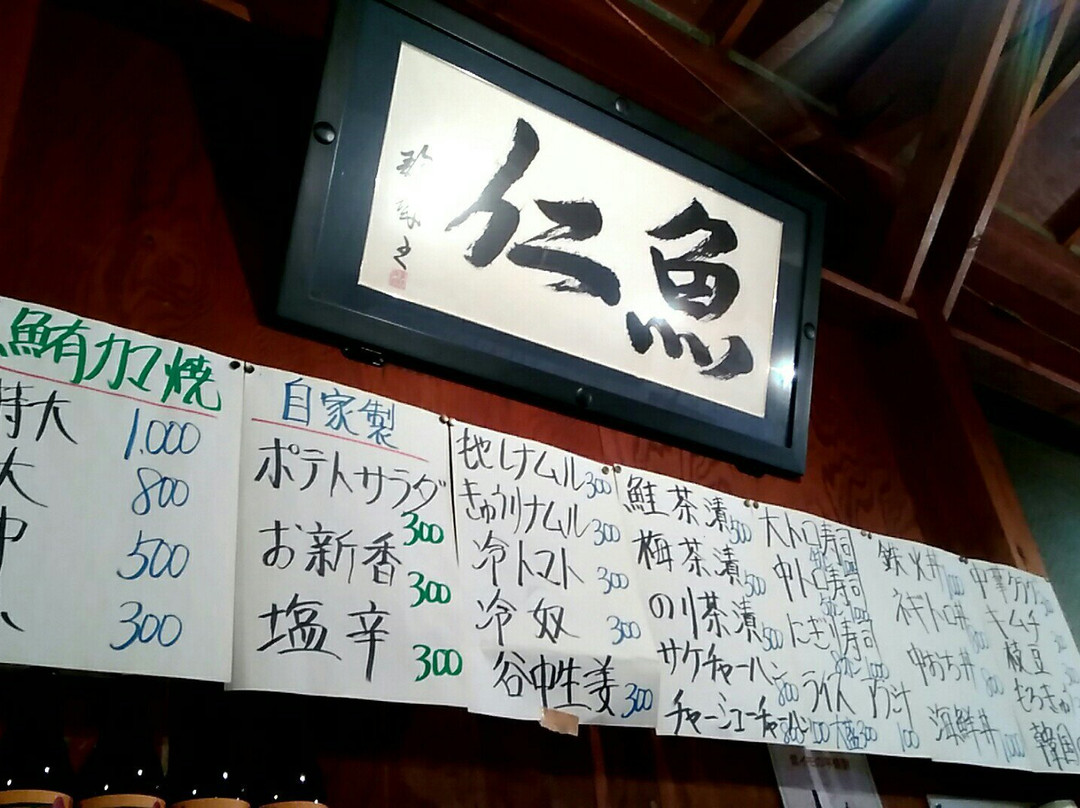 魚仁
鮪カマ焼
特大 1.000
大 800
中 500
小 300
自家製
ポテトサラダ 300
お新香 300
塩辛 300
もやしナムル 300
きゅうりナムル 300
冷トマト 300
冷奴 300
谷中生姜 300
鮭茶漬 500
梅茶漬 500
のり茶漬 500
サケチャーハン 800
チャーシューチャーハン 800
大トロ寿司
中トロ寿司
にぎり寿司
ライス
100 大盛300
アラ汁
100
鉄火丼 1000
ネギトロ丼
中おち丼
海鮮丼 1000
中華クラゲ
キムチ
枝豆
もろきゅう
韓国